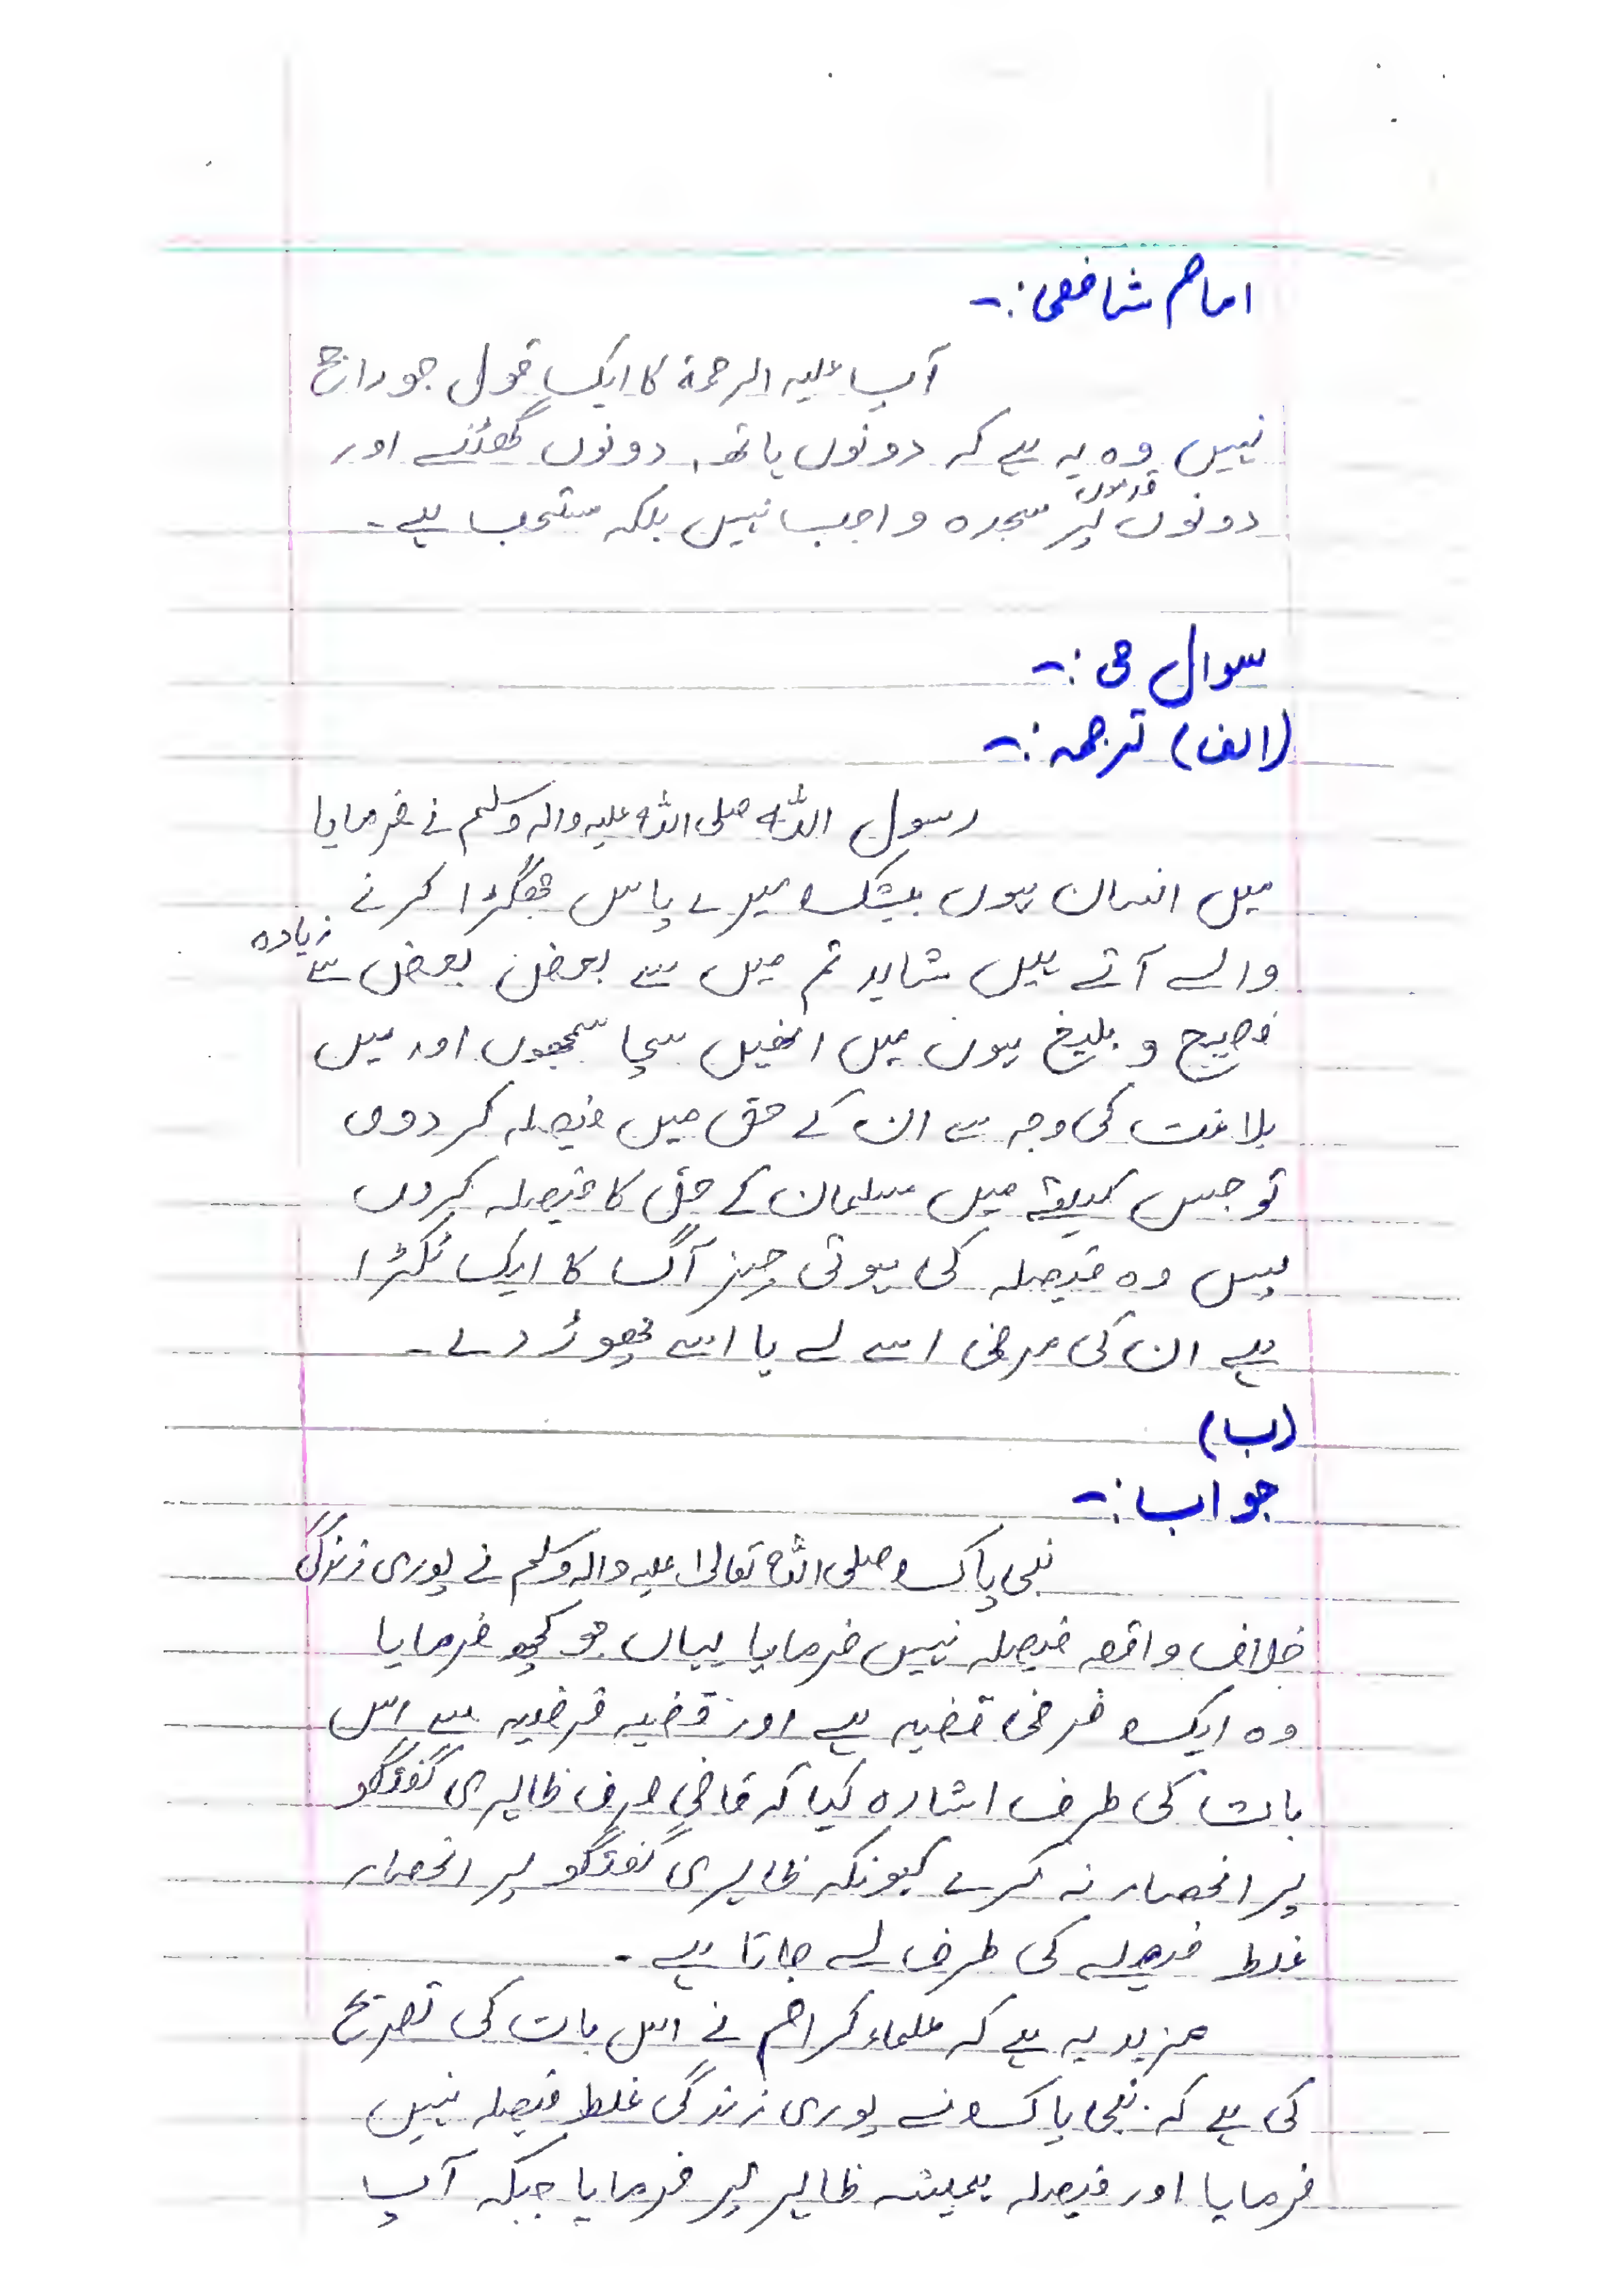 امام شافعی :-
آپ علیہ الرحمۃ کا ایک قول جو راجح
نہیں وہ یہ ہے کہ دونوں ہاتھ، دونوں گھٹنے اور
دونوں قدموں پر سجدہ واجب نہیں بلکہ مستحب ہے۔
سوال :-
(الف) ترجمہ :-
رسول اللہ صلی اللہ علیہ والہ وسلم نے فرمایا
میں انسان ہوں بیشک میرے پاس جھگڑا کرنے
والے آتے ہیں شاید تم میں سے بعض بعض سے زیادہ
فصیح و بلیغ ہوں میں انھیں سچا سمجھوں اور میں
بلاغت کی وجہ سے ان کے حق میں فیصلہ کر دوں
تو جس کیلئے میں مسلمان کے حق کا فیصلہ کردوں
پس وہ فیصلہ کی ہوئی چیز آگ کا ایک ٹکڑا
ہے ان کی مرضی اسے لے یا اسے چھوڑ دے۔
(ب)
جواب :-
نبی پاک صلی اللہ تعالیٰ علیہ والہ وسلم نے پوری زندگی
خلاف واقعہ فیصلہ نہیں فرمایا یہاں جو کچھ فرمایا
وہ ایک فرضی قضیہ ہے اور قضیہ فرضیہ سے اس
بات کی طرف اشارہ کیا کہ قاضی صرف ظاہری گفتگو
پر انحصار نہ کرے کیونکہ ظاہری گفتگو پر انحصار
غلط فیصلے کی طرف لے جاتا ہے۔
مزید یہ ہے کہ علماء کرام نے اس بات کی تصریح
کی ہے کہ نبی پاک نے پوری زندگی غلط فیصلہ نہیں
فرمایا اور فیصلہ ہمیشہ ظاہر پر فرمایا جبکہ آپ